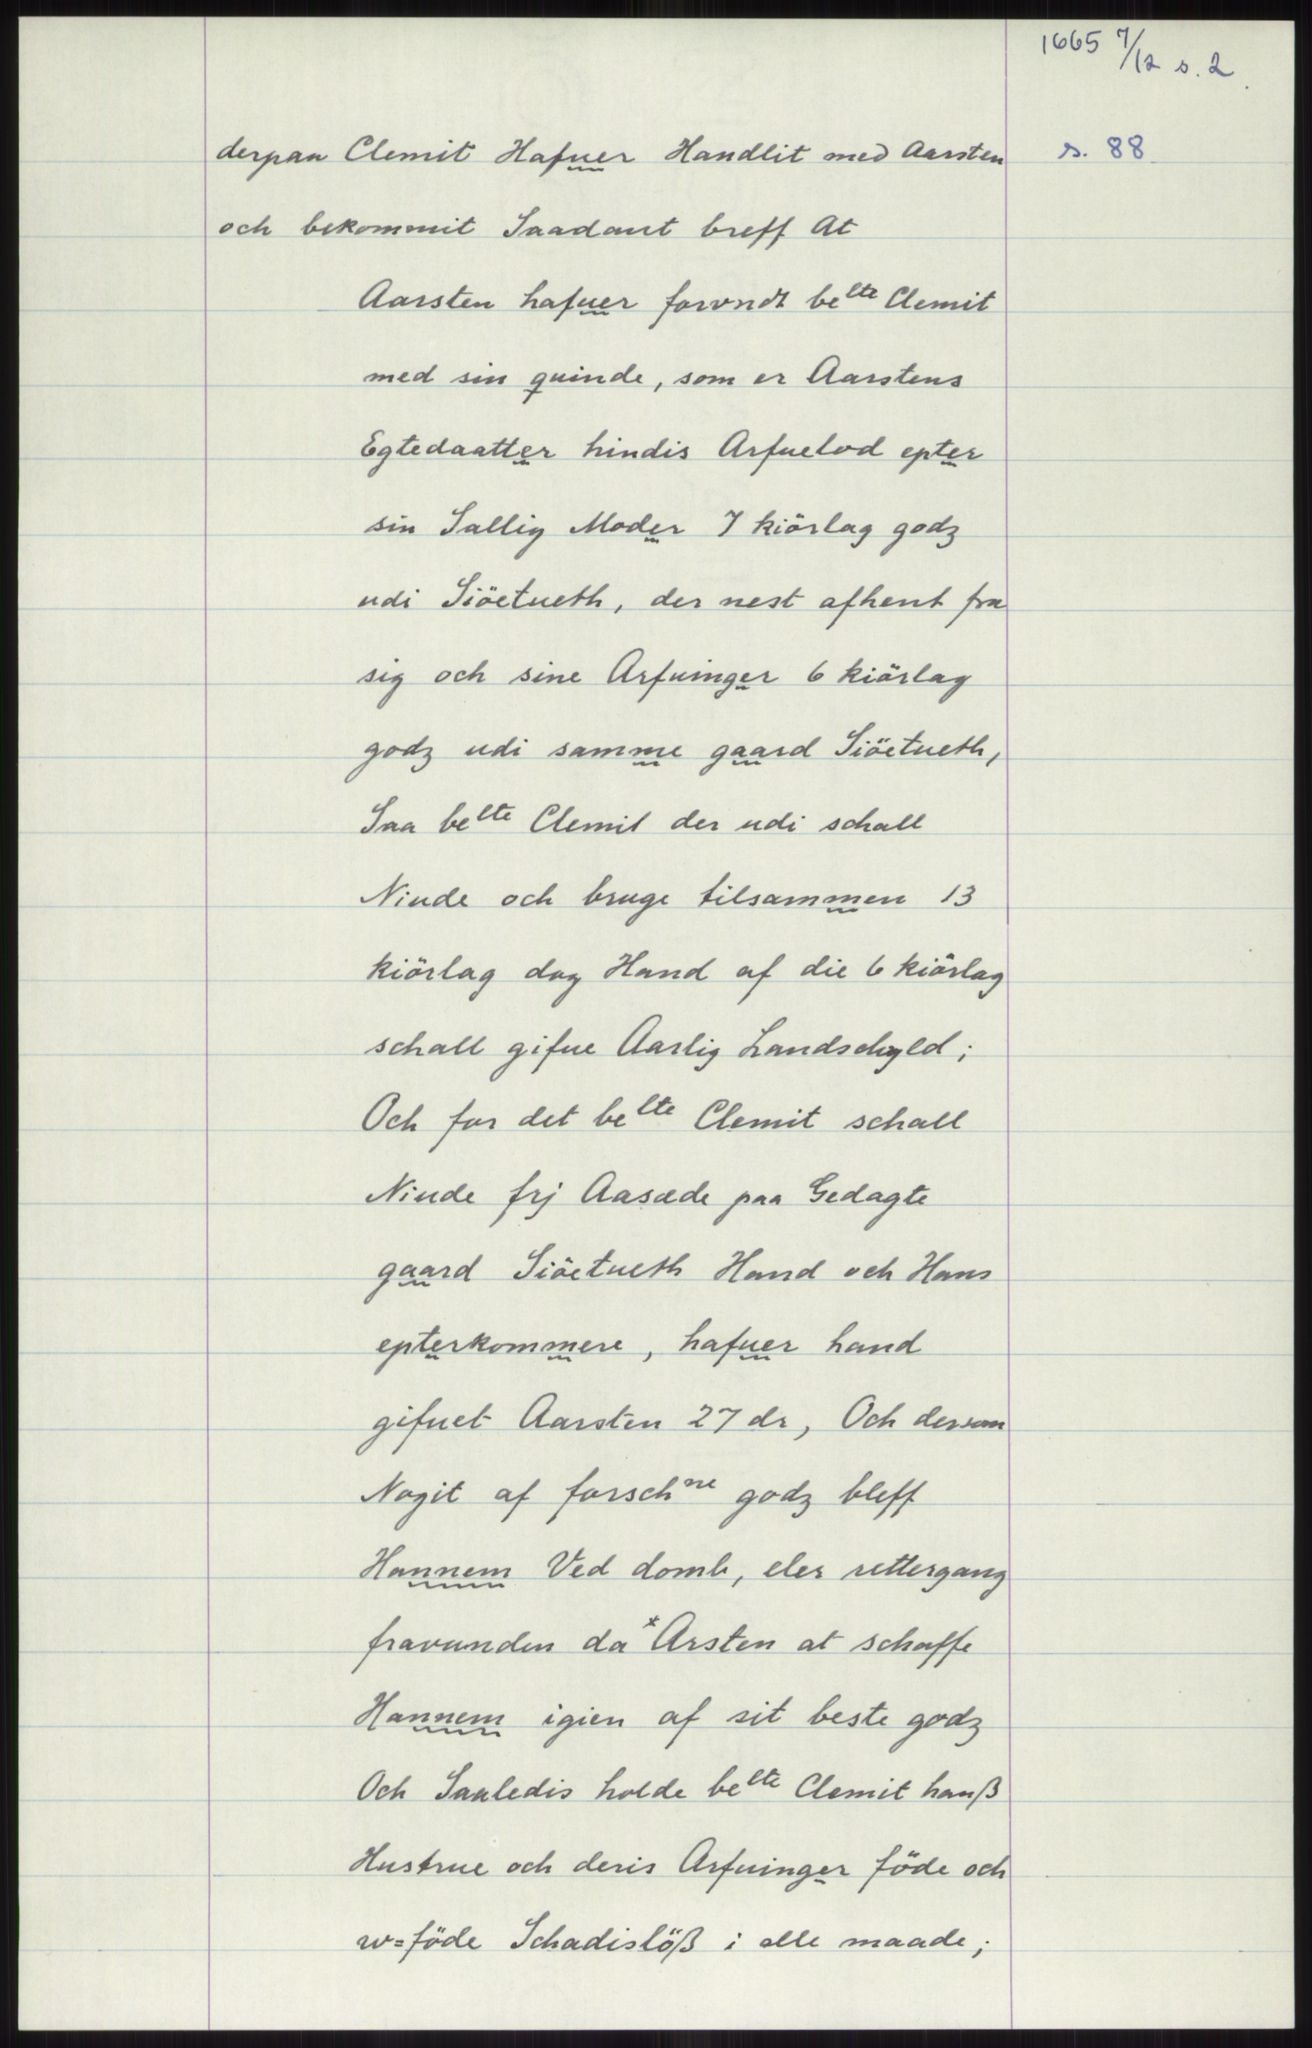 1665 7/12 s. 2.
derpaa Clemit Hafuer Handlit med Aarsten s. 88
och bekommit Saadant breff At
Aarsten hafuer forvndt belte Clemit
med sin quinde, som er Aarstens
Egtedaatter hindis Arfuelod epter
sin Sallig Moder 7 kiörlag godz
udi Siöetueth, der nest afhent fra
sig och sine Arfuinger 6 kiörlag
godz udi samme gaard Siöetueth,
Saa belte Clemit der udi schall
Niude och bruge tilsammen 13
kiörlag dog Hand af die 6 kiörlag
schall gifue Aarlig Landschyld;
Och for det belte Clemit schall
Niude frj Aasæde paa Gedagte
gaard Siöetueth Hand och Hans
epterkommere, hafuer hand
gifuet Aarsten 27 dr, Och dersom
Nogit af forschne godz bleff
Hannem Ved domb, eler rettergang
fravunden da *Arsten at schaffe
Hannem igien af sit beste godz
Och Saaledis holde belte Clemit hanß
Hustrue och deris Arfuinger föde och
w=föde Schadislöß i alle maade;